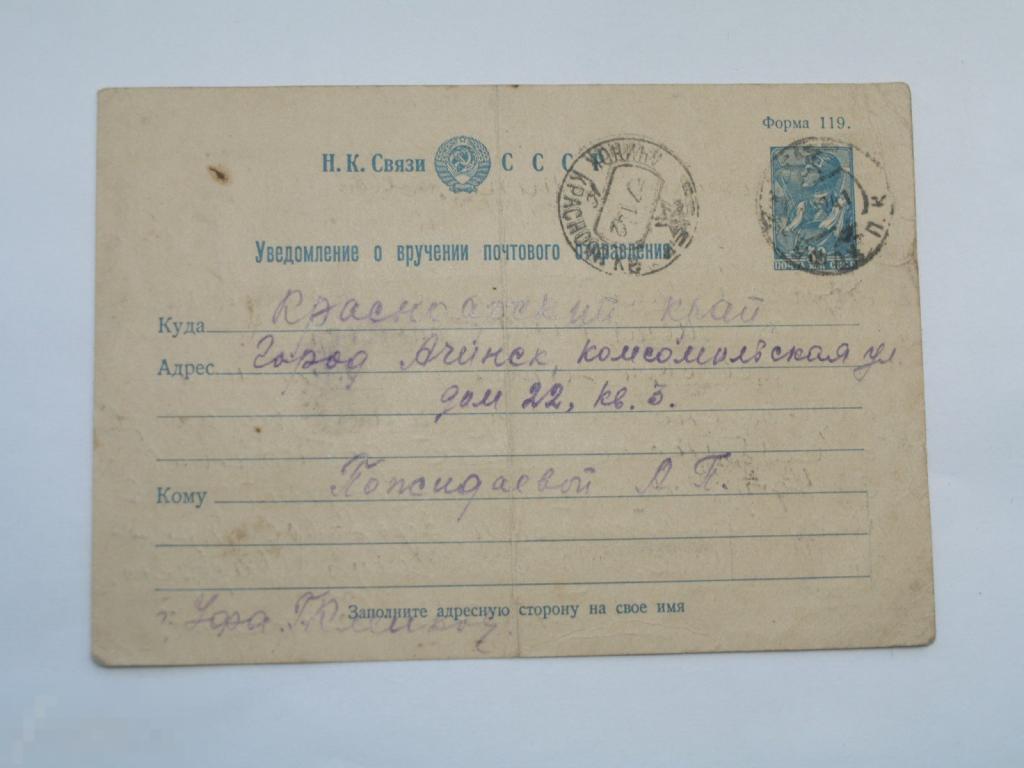 Форма 119.
Н. К. Связи С С С Р
Уведомление о вручении почтового отправления
Куда Красноярский край
Адрес Город Ачинск, комсомольская ул
дом 22, кв. 3.
Кому Пожидаевой А. П.
Заполните адресную сторону на свое имя
г. Уфа.